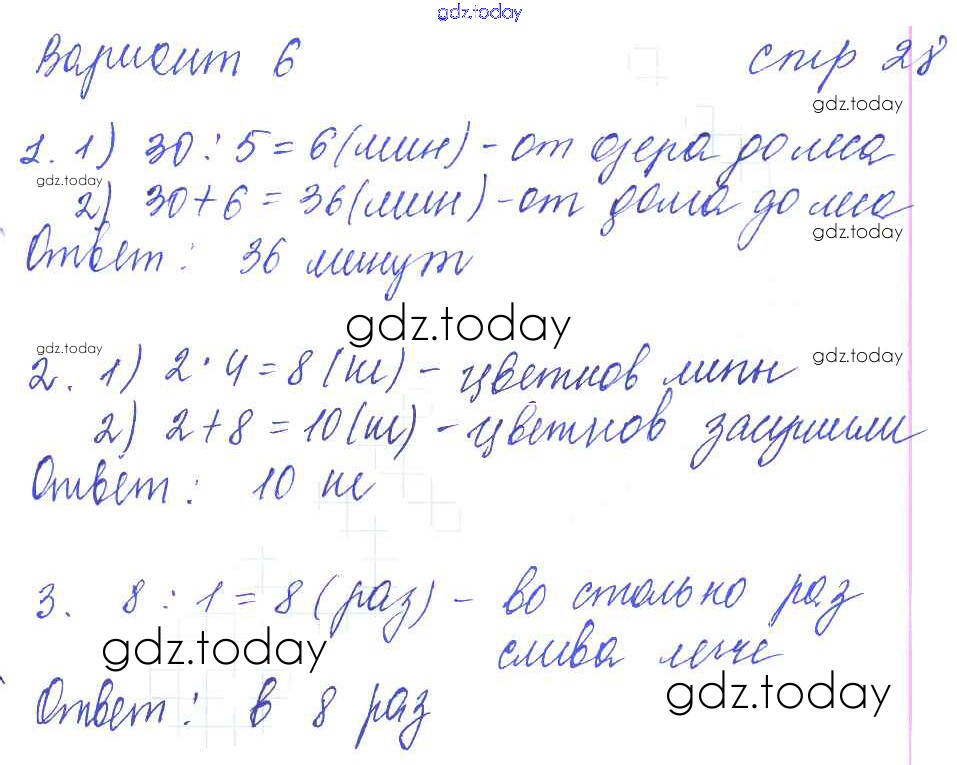 gdz.today
Вариант 6 стр 28
gdz.today
1. 1) 30 : 5 = 6 (мин) - от озера до леса
gdz.today
2) 30 + 6 = 36 (мин) - от дома до леса
gdz.today
Ответ: 36 минут
gdz.today
gdz.today
gdz.today
2. 1) 2 · 4 = 8 (кг) - цветков липы
2) 2 + 8 = 10 (кг) - цветков засушили
Ответ: 10 кг
3. 8 : 1 = 8 (раз) - во столько раз
gdz.today
слива легче
gdz.today
Ответ: в 8 раз